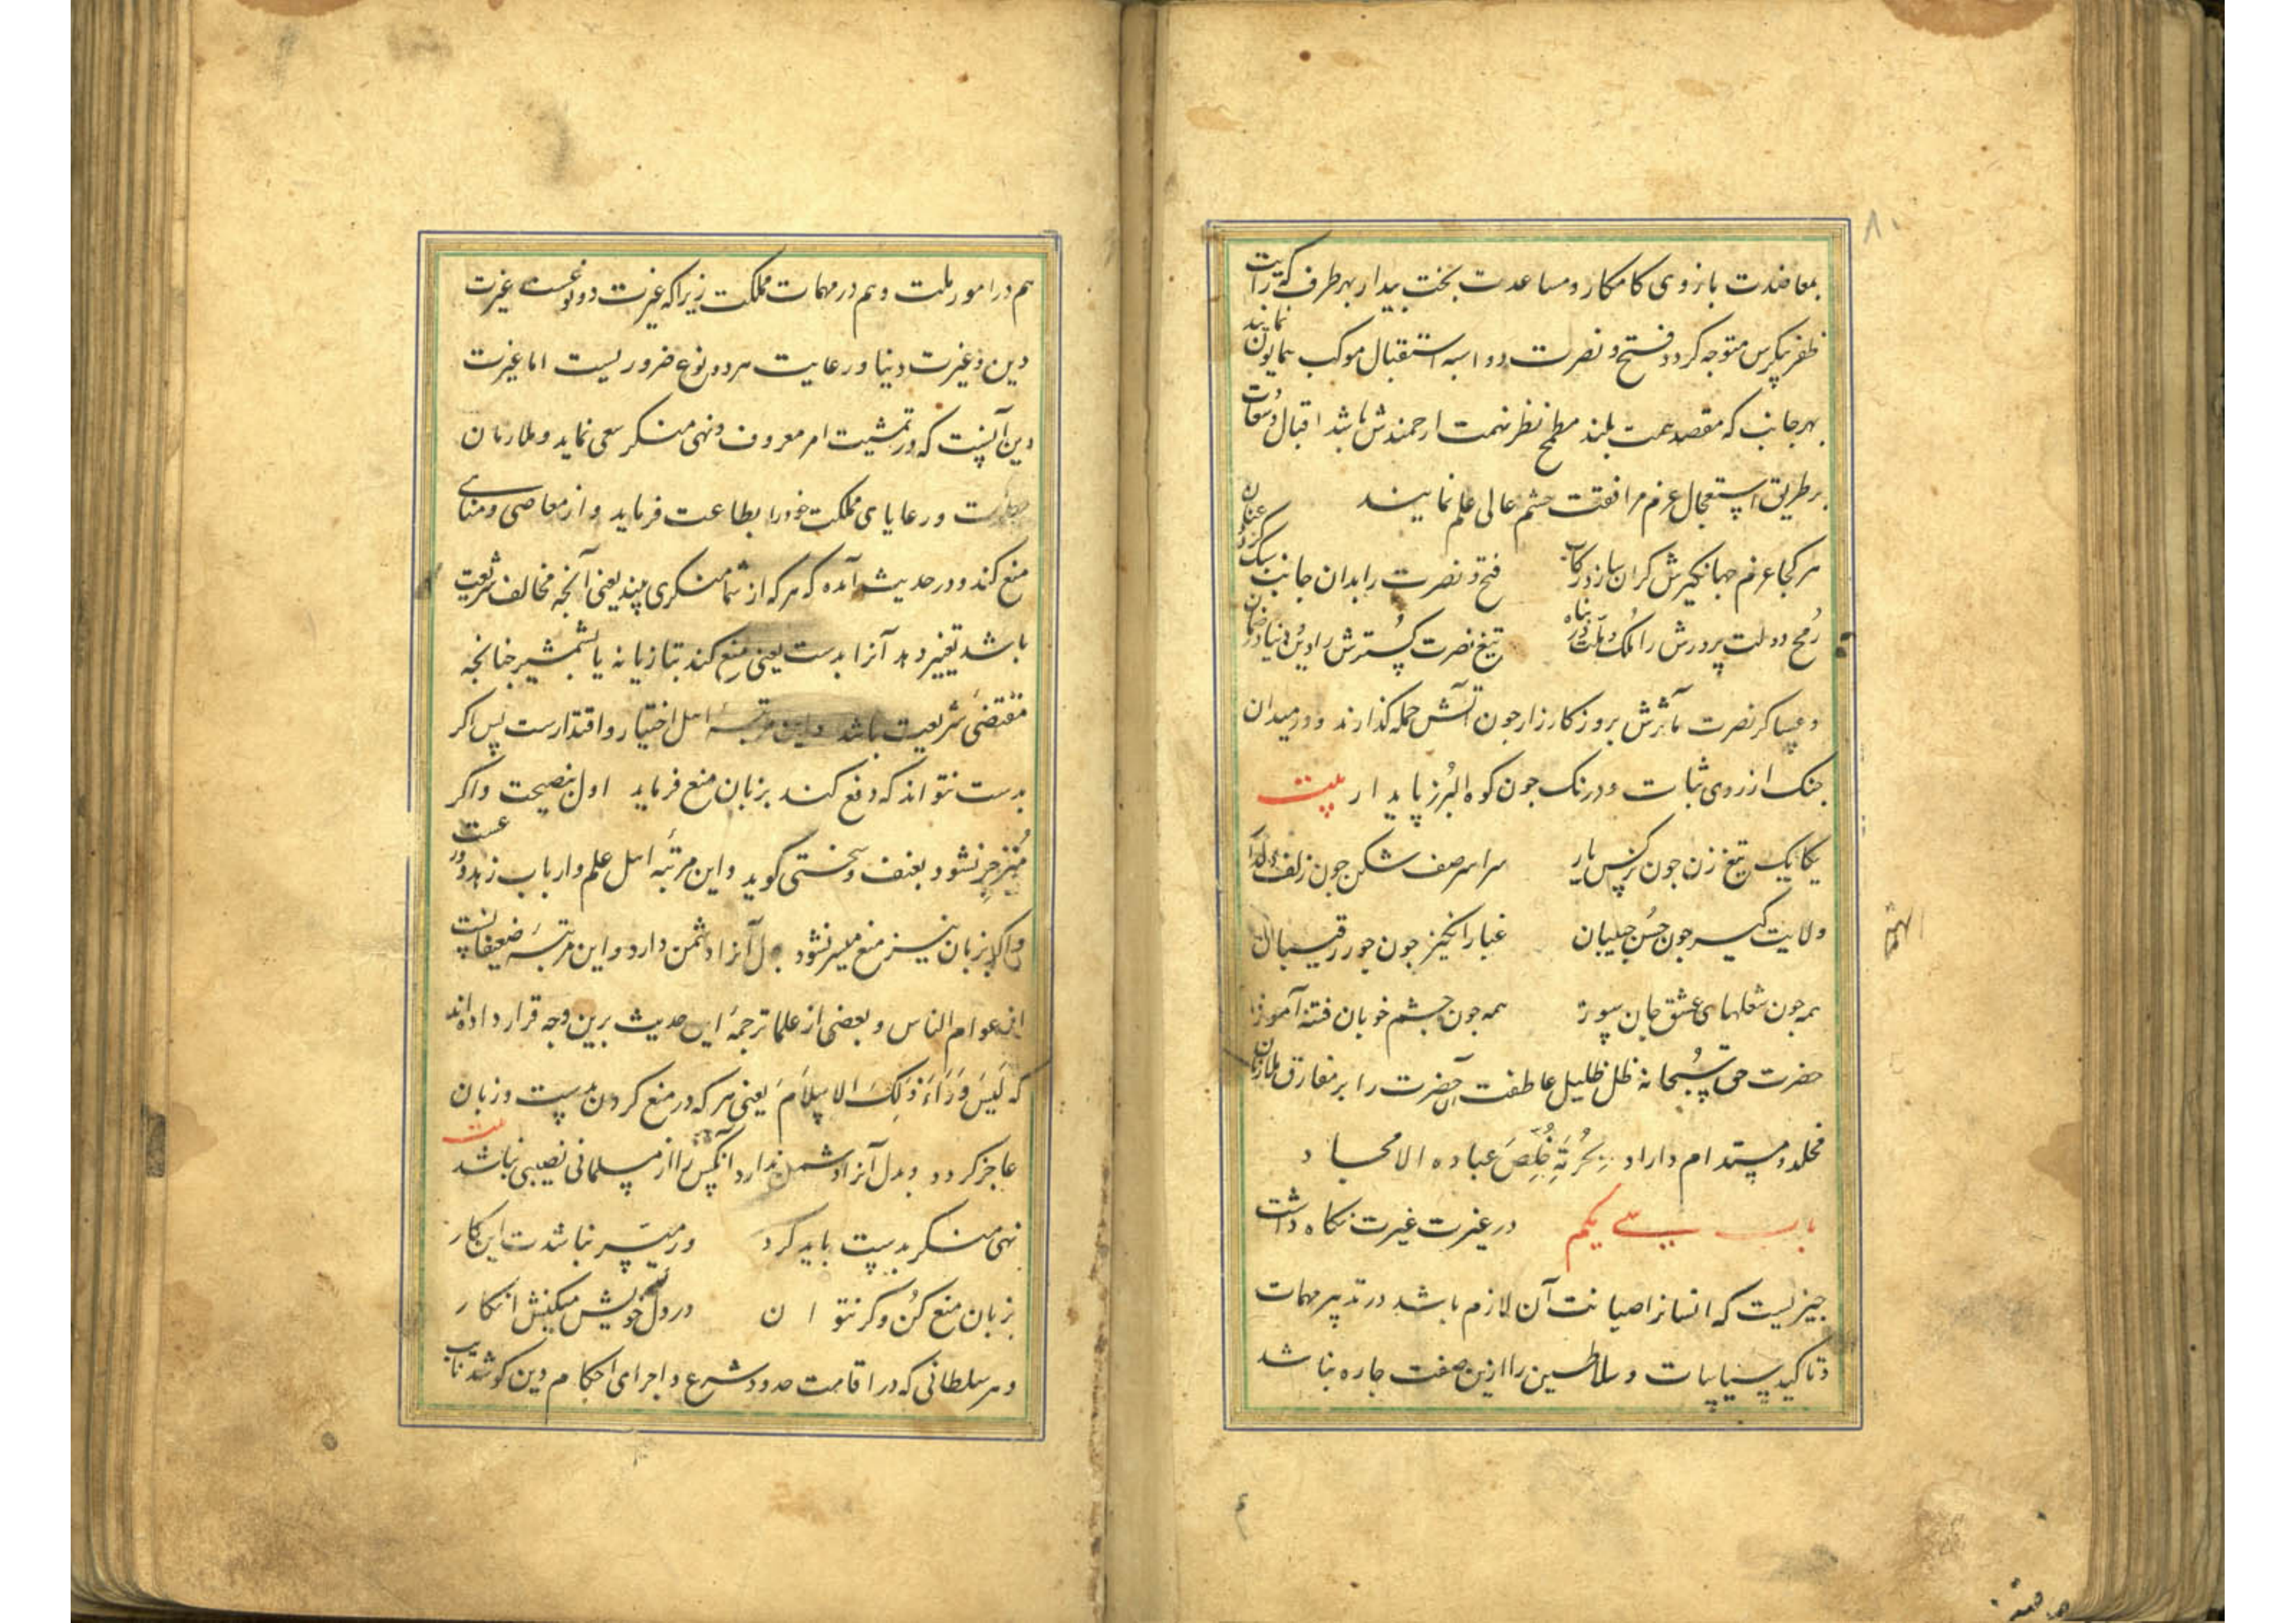 بمعاضدت بازوی کامکار و مساعدت بخت بیدار بهر طرف که رایت
ظفر پیکرش متوجه کردد فتح و نصرت دو اسبه استقبال موکب همایون نمایند
بهر جانب که مقصد همت بلند و مطمح نظر نهمت ارجمندش باشد اقبال و سعادت
بر طریق استعجال عزم مرافقت حشم عالی علم نمایند
هر کجا عزم جهانکیرش کران سازد رکاب فتح و نصرت را بدان جانب سبک کردد عنان
رمح دولت پرورش را ملک و ملت در پناه تیغ نصرت کسترش را دین و دنیا در ضمان
و عساکر نصرت مآثرش بروز کارزار جون آتش حمله کذارند و در میدان
جنک از روی ثبات و درنک جون کوه البرز پایدار بیت
یکایک تیغ زن جون نرکس یار سراسر صف شکن جون زلف دلدار
ولایت کیر جون حسن جلیبان غبار انکیز جون جور رقیبان
همه جون شعلهای عشق جان سوز همه جون جشم خوبان فتنه آموز
حضرت حق سبحانه ظل ظلیل عاطفت آن حضرت را بر مفارق ملازمان
مخلد و مستدام داراد بحرمة خلص عباده الامجاد
باب سی یکم در غیرت غیرت نکاه داشت
جیزیست که انسانرا صیانت آن لازم باشد در تدبیر مهمات
و تاکید سیاسات و سلاطین را ازین صفت جاره نباشد
هم در امور ملت و هم در مهمات مملکت زیرا که غیرت دو نوعست غیرت
دین و غیرت دنیا و رعایت هر دو نوع ضروریست اما غیرت
دین آنست که در تمشیت امر معروف و نهی منکر سعی نماید و ملازمان
و رعایای مملکت خود را بطاعت فرماید و از معاصی و مناهی
منع کند و در حدیث آمده که هر که از شما منکری بیند یعنی آنجه مخالف شریعت
باشد تغییر دهد آنرا بدست یعنی منع کند بتازیانه یا بشمشیر جنانجه
مقتضی شریعت باشد و این مرتبه اهل اختیار و اقتدارست پس اکر
بدست نتواند که دفع کند بزبان منع فرماید اول بنصیحت و اکر
منزجر نشود بعنف و سختی کوید و این مرتبه اهل علم و ارباب زهد و ورعست
و اکر بزبان نیز منع میسر نشود بدل آنرا دشمن دارد و این مرتبه ضعیفانست
از عوام الناس و بعضی از علما ترجمه این حدیث برین وجه قرار داده‌اند
که لیس وراء ذلک الاسلام یعنی هر که در منع کردن بدست و زبان
عاجز کردد و بدل آنرا دشمن ندارد آنکس را از مسلمانی نصیبی نباشد بیت
نهی منکر بدست باید کرد ور میسر نباشدت این کار
بزبان منع کن و کر نتوان در دل خویش میکنش انکار
و هر سلطانی که در اقامت حدود شرع و اجرای احکام دین کوشد نایب